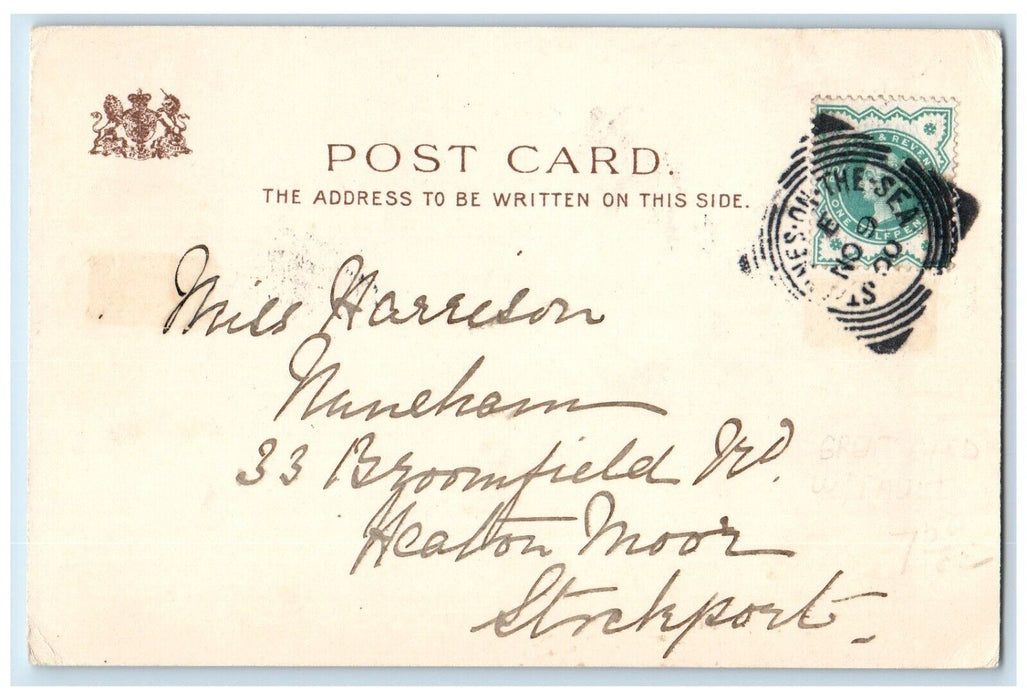 POST CARD.
THE ADDRESS TO BE WRITTEN ON THIS SIDE.
& REVEN
ONE HALFPEN
ON·THE·SEA
NO
Miss Harrison
Nuneham
33 Broomfield Rd.
Heaton Moor
Stockport